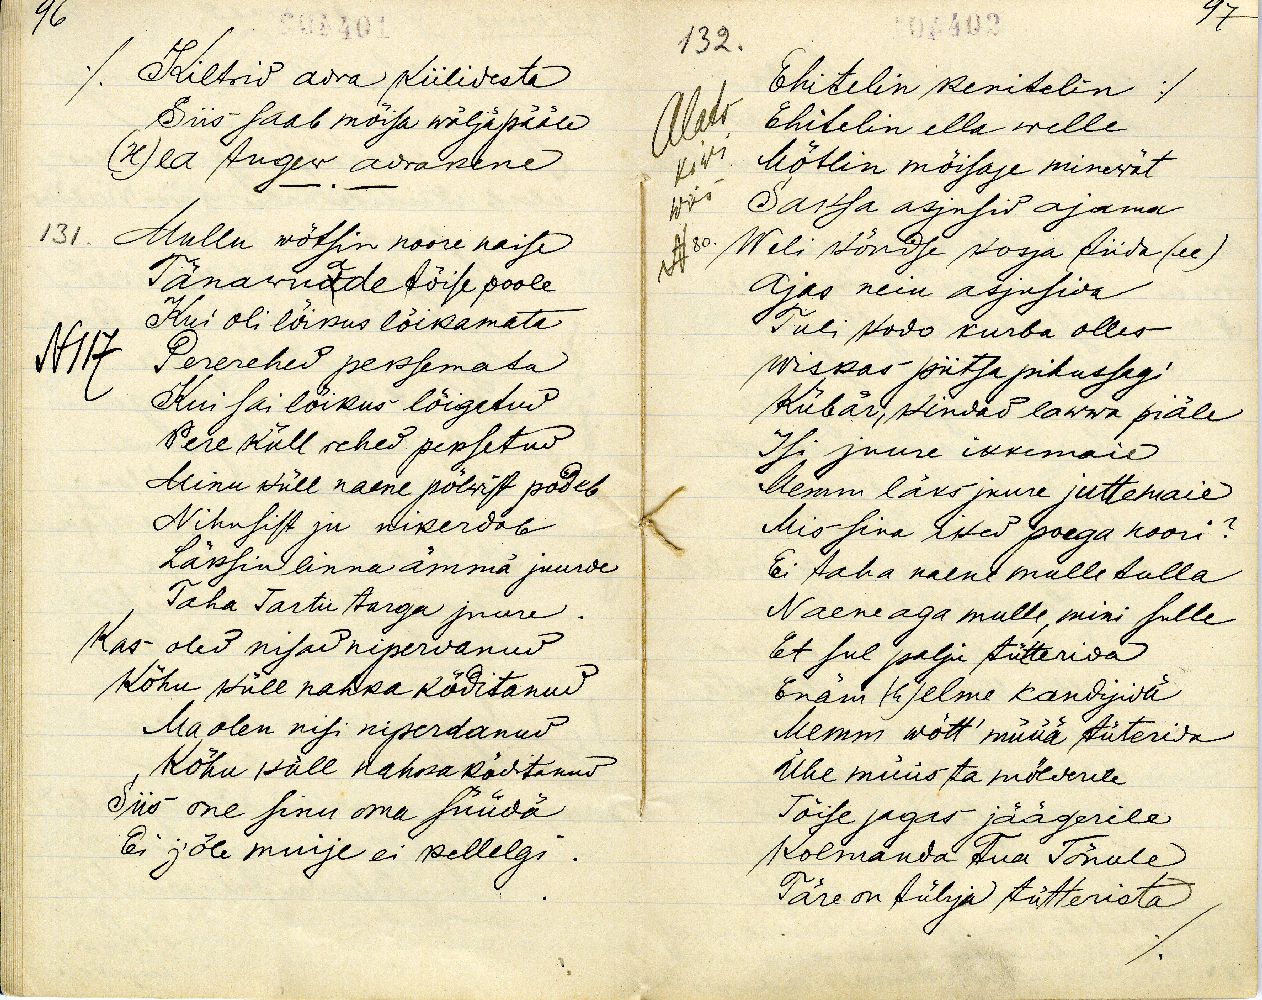 96
./. Kiltrid adra kiilidesta
Siis saab mõisa wäljäpääle
(H)ea tugew adrakene
131. Mullu wõtsin noore naise
Tänawuade tõise poole
Kui oli lõikus lõikamata
N 117 Pererehed peksemata
Kui sai lõikus lõigatud
Pere küll rehed peksetud
Minu küll naene põlwist põdeb
Nihusist ju nikerdab
Läksin linna ämmä juurde
Taha Tartu targa juure.
Kas oled nisad niperdanud
Kõhu küll nahka köditanud
Ma olen nisi niperdanud
Kõhu küll nahka köditanud
Siis one sinu oma süüdä
Ei jõle muije ei kellelgi.
97
132. Ehitelin kenitelin :/
Alats
kiwi
wiis
N 80.
Ehitelin ella welle
Mõtlin mõisaje minewät
Saksa asjusid ajama
Weli kõndse kosja tiida (ee)
Ajas neiu asjusida
Tuli kodo kurba olles
Wiskas piitsa pihussagi
Kübär, kindad lawwa piäle
Isi juure ikkemaie
Memm läks juure juttemaie
Mis sina iked poega noori?
Ei taha naene mulle tulla
Naene aga mulle, mini sulle
Et sul palju tütterida
Enäm (h)elme kandijidä
Memm wõtt' müüä tüterida
Ühe müüs ta mölderile
Tõise jagas jäägerile
Kolmanda Tua Tõnule
Täre on tühja tütterista
./.